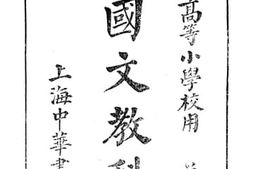 高等小學校用
國文教科
上海中華書